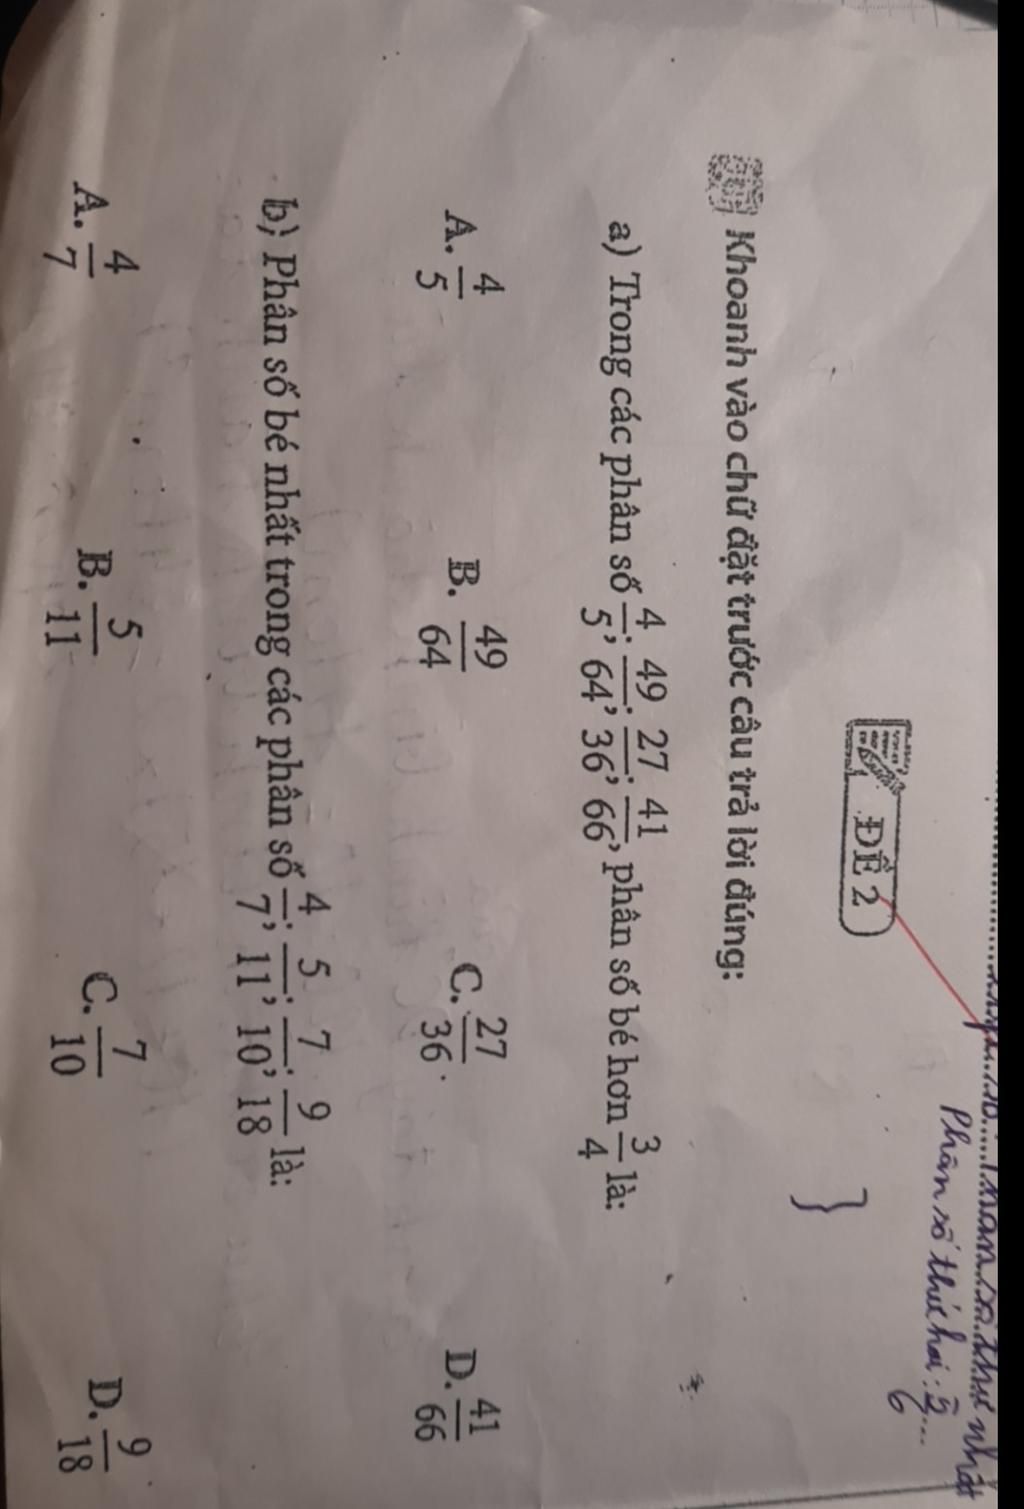 Phân số thứ hai : 5/6 ....
ĐỀ 2
Khoanh vào chữ đặt trước câu trả lời đúng:
a) Trong các phân số 4/5; 49/64; 27/36; 41/66, phân số bé hơn 3/4 là:
A. 4/5 B. 49/64 C. 27/36 D. 41/66
b) Phân số bé nhất trong các phân số 4/7; 5/11; 7/10; 9/18 là:
A. 4/7 B. 5/11 C. 7/10 D. 9/18